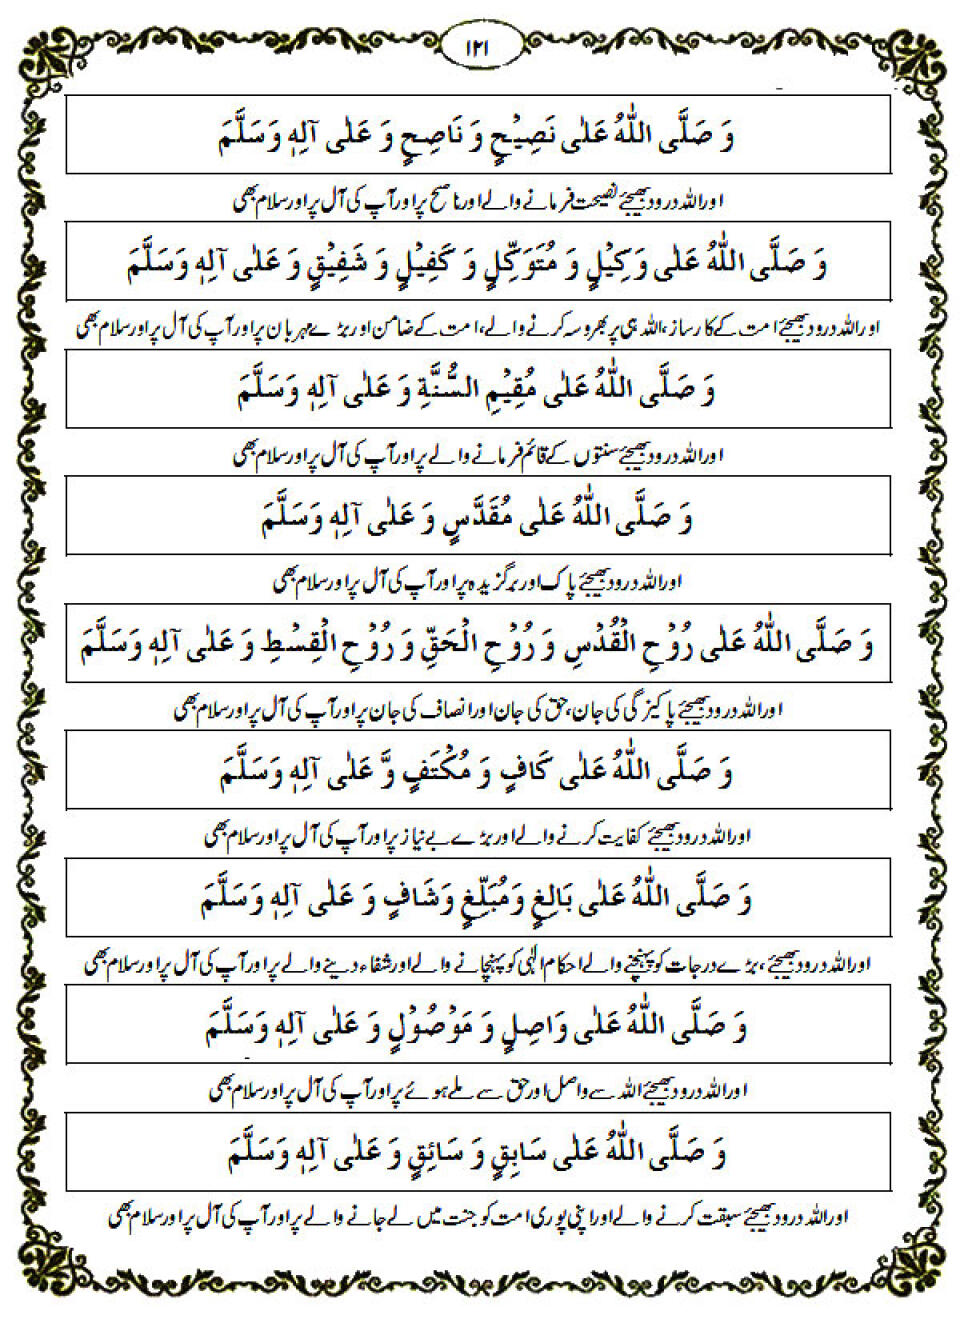 ١٢١
وَ صَلَّى اللّٰهُ عَلٰى نَصِيْحٍ وَ نَاصِحٍ وَ عَلٰى آلِهٖ وَسَلَّمَ
اور اللہ درود بھیجئے نصیحت فرمانے والے اور ناصح پر اور آپ کی آل پر اور سلام بھی
وَ صَلَّى اللّٰهُ عَلٰى وَكِيْلٍ وَ مُتَوَكِّلٍ وَ كَفِيْلٍ وَ شَفِيْقٍ وَ عَلٰى آلِهٖ وَسَلَّمَ
اور اللہ درود بھیجئے امت کے کارساز، اللہ ہی پر بھروسہ کرنے والے، امت کے ضامن اور بڑے مہربان پر اور آپ کی آل پر اور سلام بھی
وَ صَلَّى اللّٰهُ عَلٰى مُقِيْمِ السُّنَّةِ وَ عَلٰى آلِهٖ وَسَلَّمَ
اور اللہ درود بھیجئے سنتوں کے قائم فرمانے والے پر اور آپ کی آل پر اور سلام بھی
وَ صَلَّى اللّٰهُ عَلٰى مُقَدَّسٍ وَ عَلٰى آلِهٖ وَسَلَّمَ
اور اللہ درود بھیجئے پاک اور برگزیدہ پر اور آپ کی آل پر اور سلام بھی
وَ صَلَّى اللّٰهُ عَلٰى رُوْحِ الْقُدْسِ وَ رُوْحِ الْحَقِّ وَ رُوْحِ الْقِسْطِ وَ عَلٰى آلِهٖ وَسَلَّمَ
اور اللہ درود بھیجئے پاکیزگی کی جان، حق کی جان اور انصاف کی جان پر اور آپ کی آل پر اور سلام بھی
وَ صَلَّى اللّٰهُ عَلٰى كَافٍ وَ مُكْتَفٍ وَّ عَلٰى آلِهٖ وَسَلَّمَ
اور اللہ درود بھیجئے کفایت کرنے والے اور بڑے بے نیاز پر اور آپ کی آل پر اور سلام بھی
وَ صَلَّى اللّٰهُ عَلٰى بَالِغٍ وَمُبَلِّغٍ وَشَافٍ وَ عَلٰى آلِهٖ وَسَلَّمَ
اور اللہ درود بھیجئے، بڑے درجات کو پہنچنے والے احکام الٰہی کو پہنچانے والے اور شفاء دینے والے پر اور آپ کی آل پر اور سلام بھی
وَ صَلَّى اللّٰهُ عَلٰى وَاصِلٍ وَ مَوْصُوْلٍ وَ عَلٰى آلِهٖ وَسَلَّمَ
اور اللہ درود بھیجئے اللہ سے واصل اور حق سے ملے ہوئے پر اور آپ کی آل پر اور سلام بھی
وَ صَلَّى اللّٰهُ عَلٰى سَابِقٍ وَ سَائِقٍ وَ عَلٰى آلِهٖ وَسَلَّمَ
اور اللہ درود بھیجئے سبقت کرنے والے اور اپنی پوری امت کو جنت میں لے جانے والے پر اور آپ کی آل پر اور سلام بھی